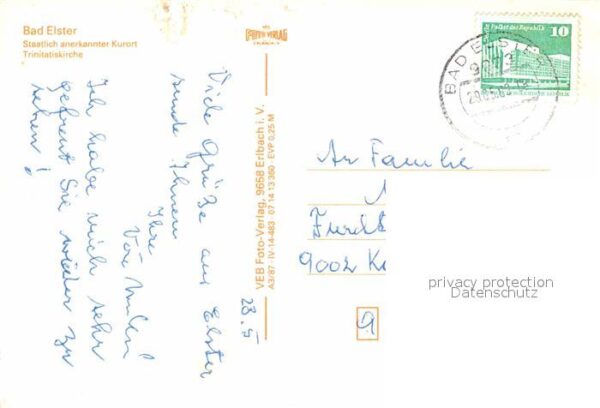 Bad Elster
Staatlich anerkannter Kurort
Trinitatiskirche
FOTO VERLAG
ERLBACH
Viele Grüße aus Elster
sende Ihnen
Ihre
Ich habe mich sehr
gefreut Sie wieder zu
sehen!
28.5
VEB Foto-Verlag, 9658 Erlbach i. V.
A3/87 IV-14-483 · 07 14 13 360 EVP 0,25 M
10
BAD ELSTER
An Familie
9002 K
privacy protection
Datenschutz